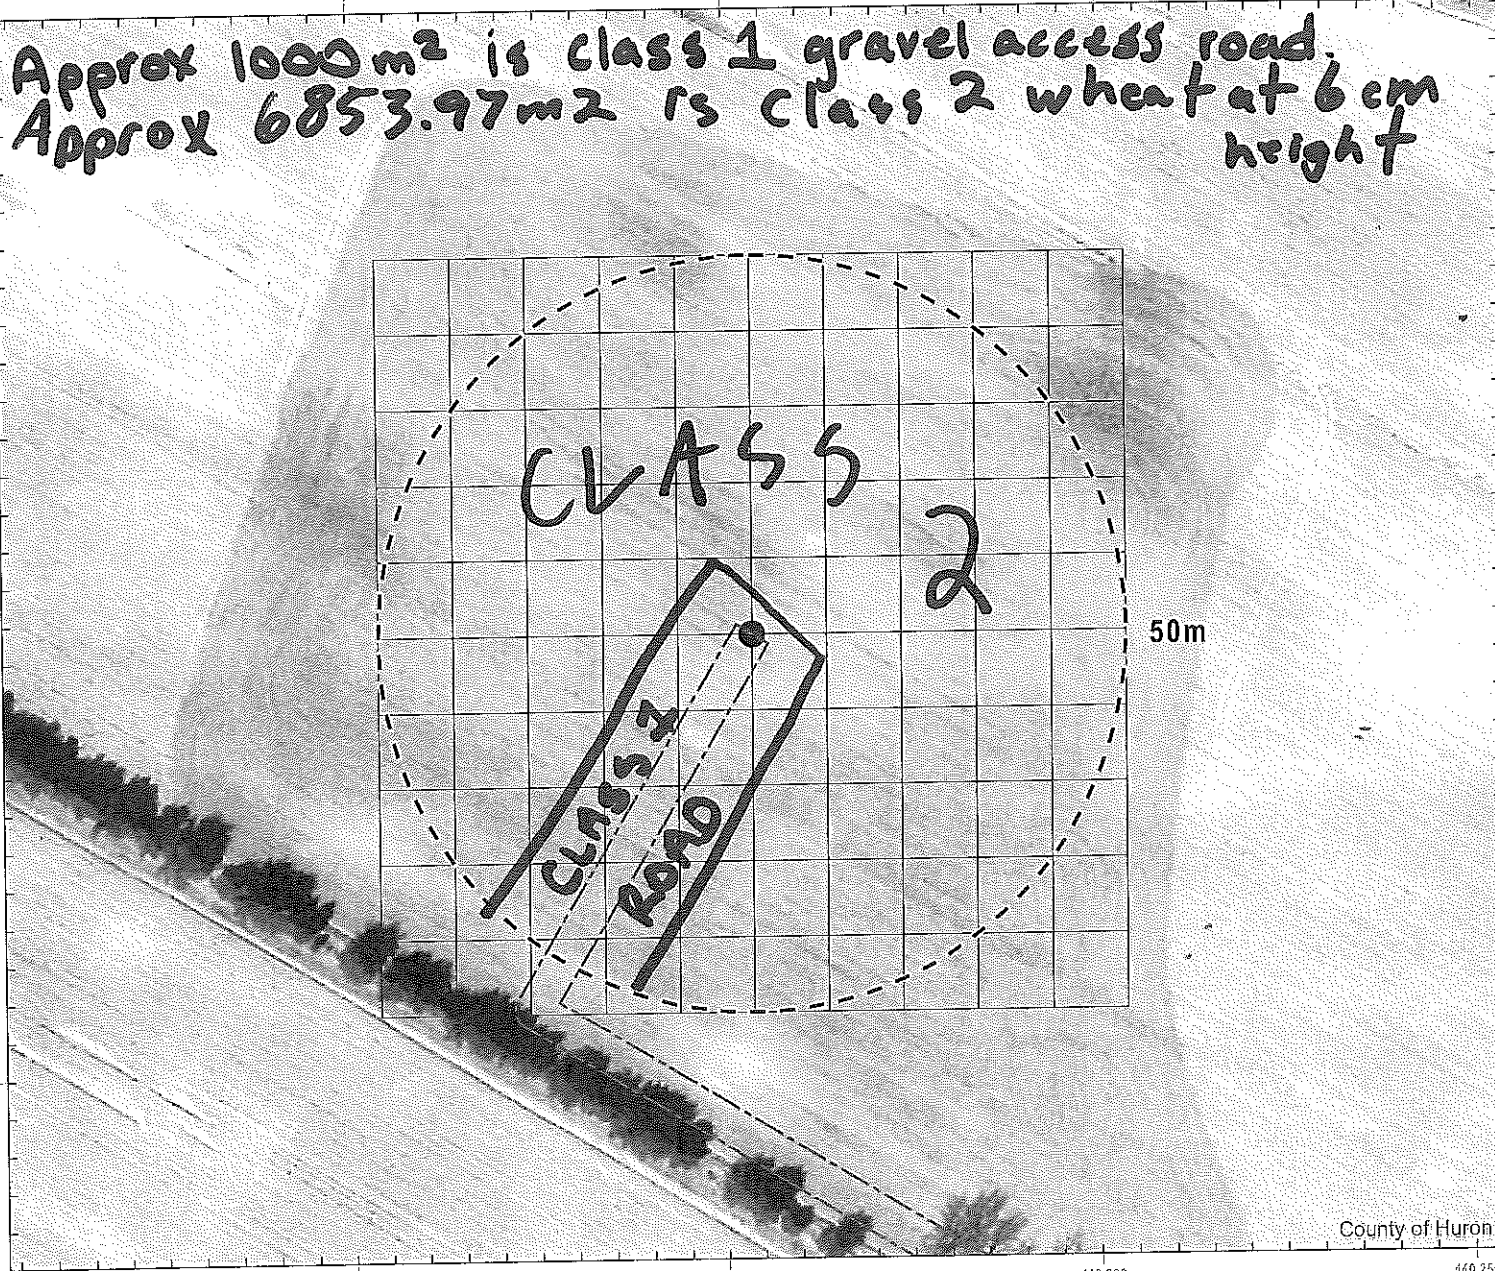 Approx 1000m² is class 1 gravel access road.
Approx 6853.97m2 is Class 2 wheat at 6 cm
height
CLASS 2
50m
CLASS 1
ROAD
County of Huron